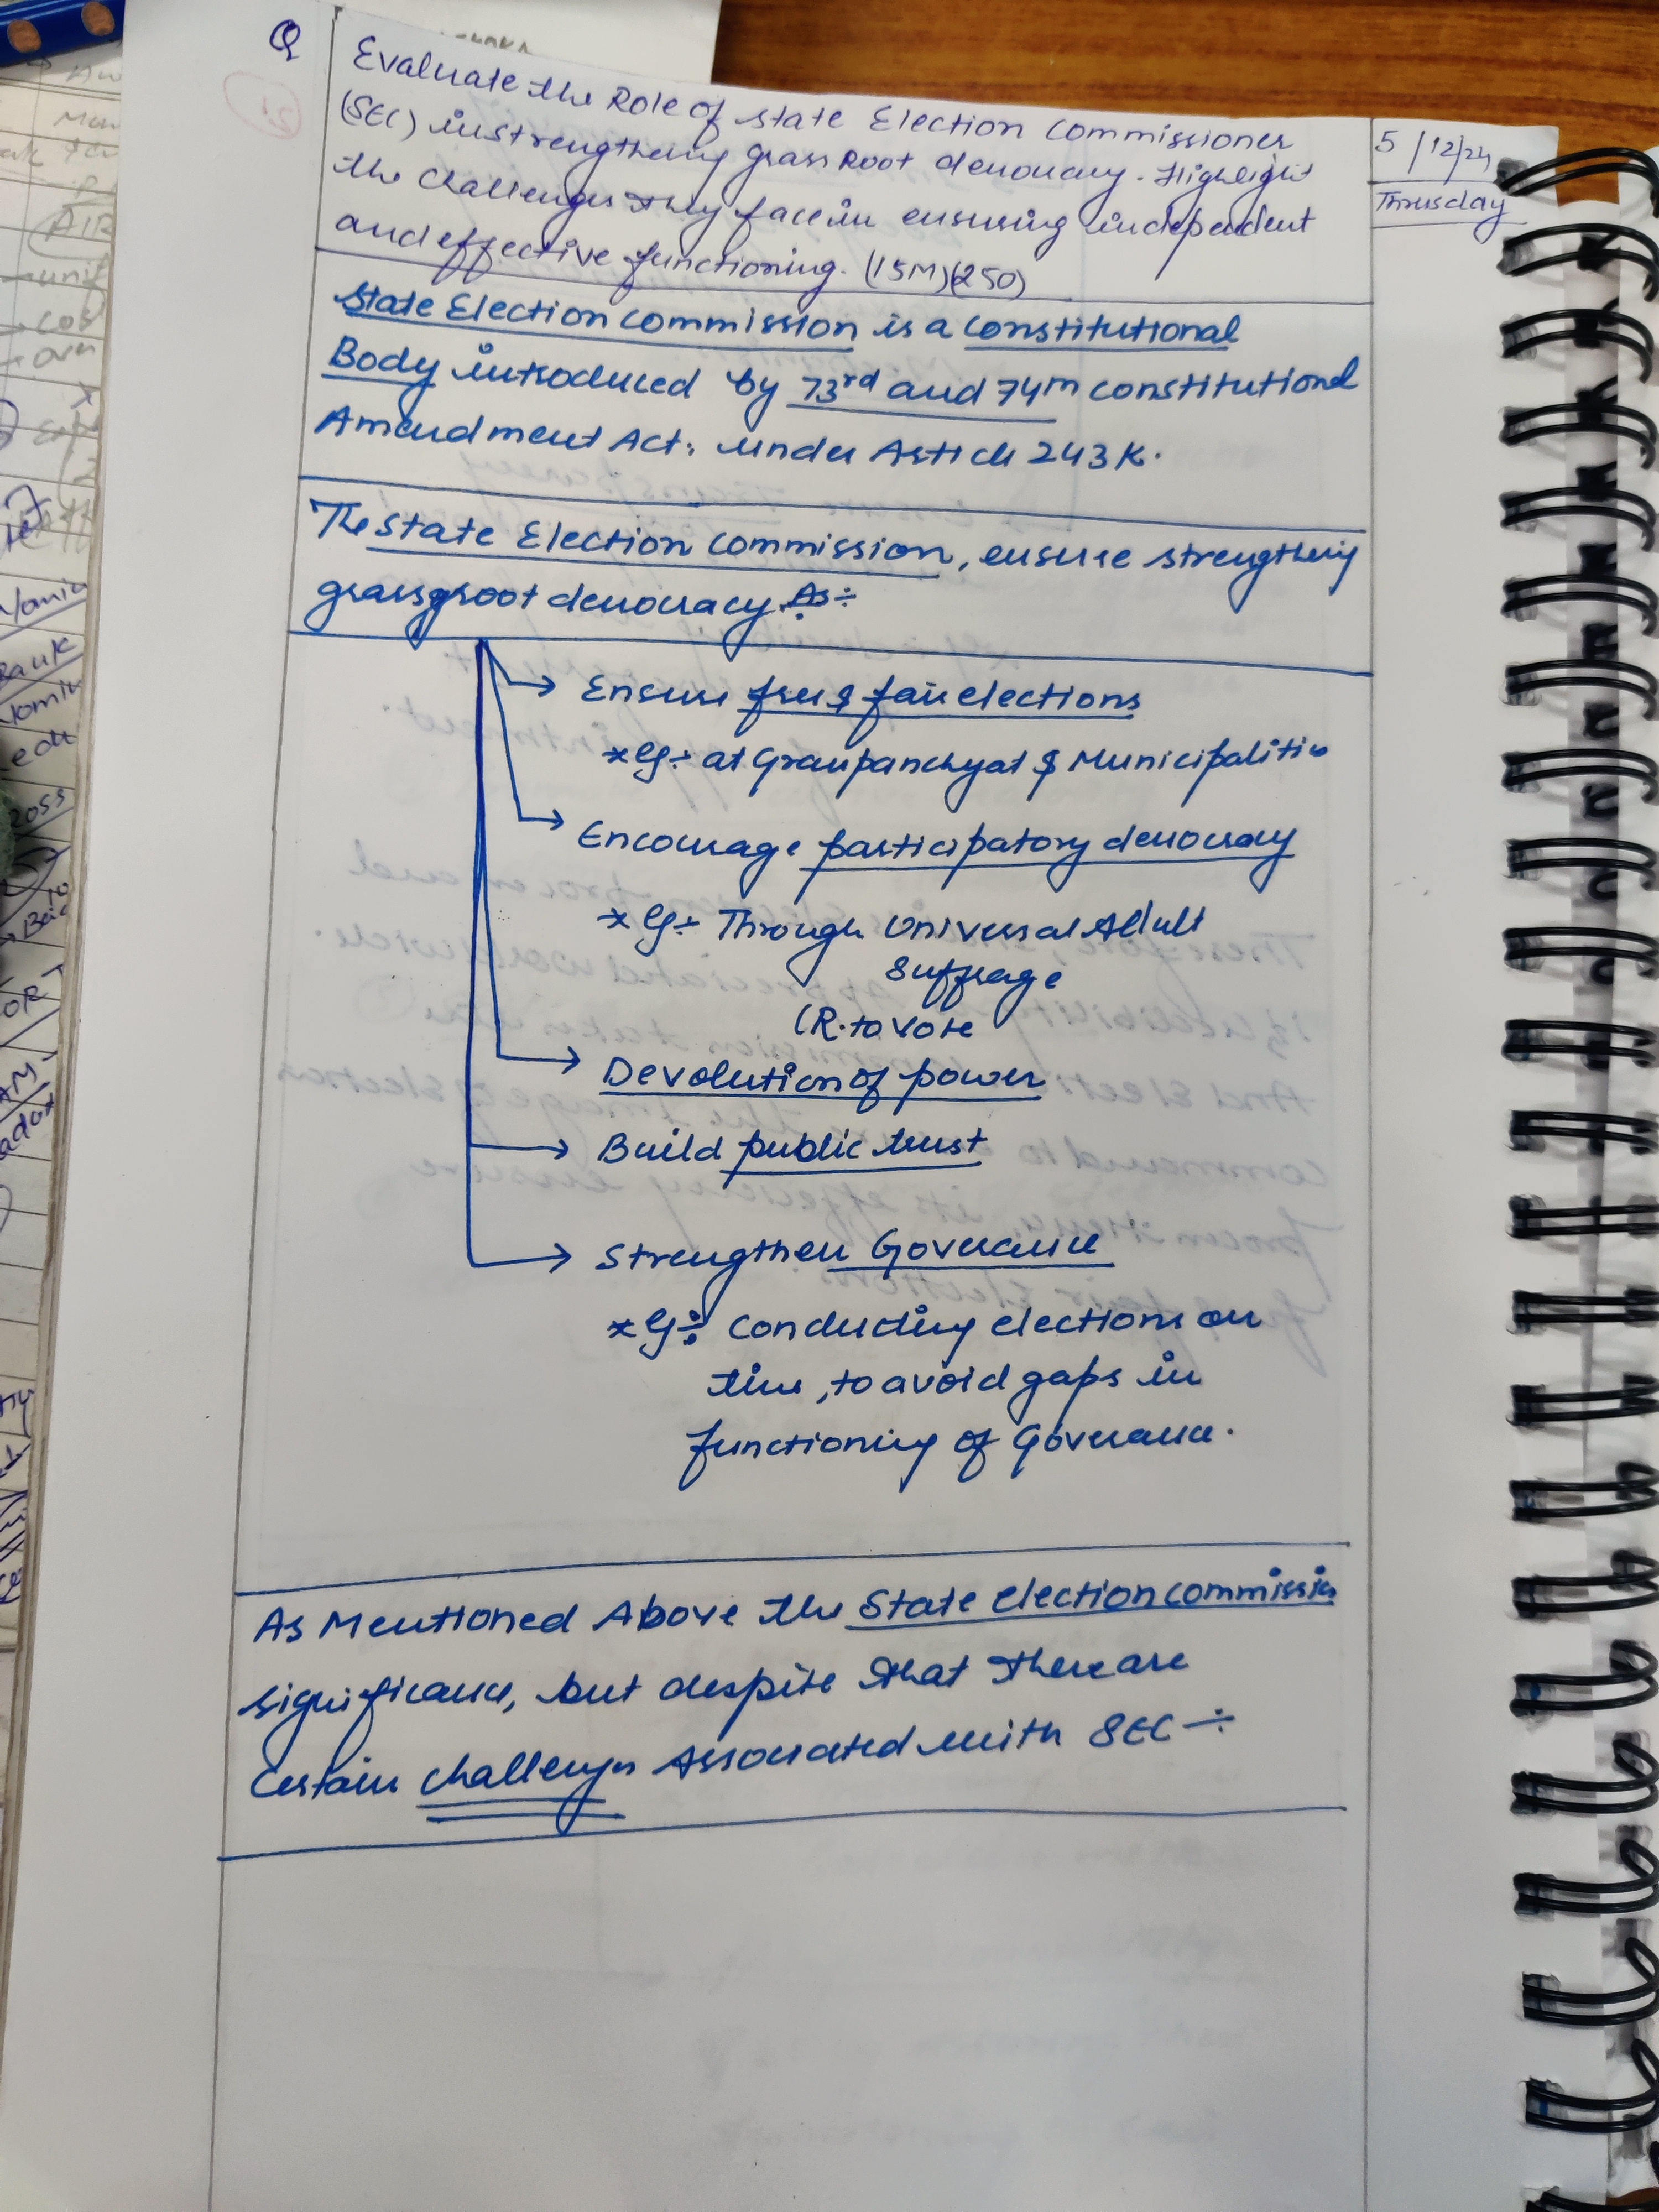 Q
Evaluate the Role of State Election Commissioner
(SEC) in strengthening grass Root democracy. Highlight
the challenges they face in ensuring independent
and effective functioning. (15M)(250)
5/12/24
Thrusday
State Election Commission is a Constitutional
Body introduced by 73rd and 74th constitutional
Amendment Act, under Article 243K.
The State Election Commission, ensure strengthening
grassgroot democracy As÷
Ensure free & fair elections
*Eg÷ at Grampanchyat & Municipalities
Encourage participatory democracy
*Eg÷ Through Universal Adult
Suffrage
(R. to vote
Devolution of power
Build public trust
Strengthen Governance
*Eg÷ Conducting elections on
time, to avoid gaps in
functioning of Governance.
As Mentioned Above the State election commission
significance, but despite that there are
Certain challenges Associated with SEC÷